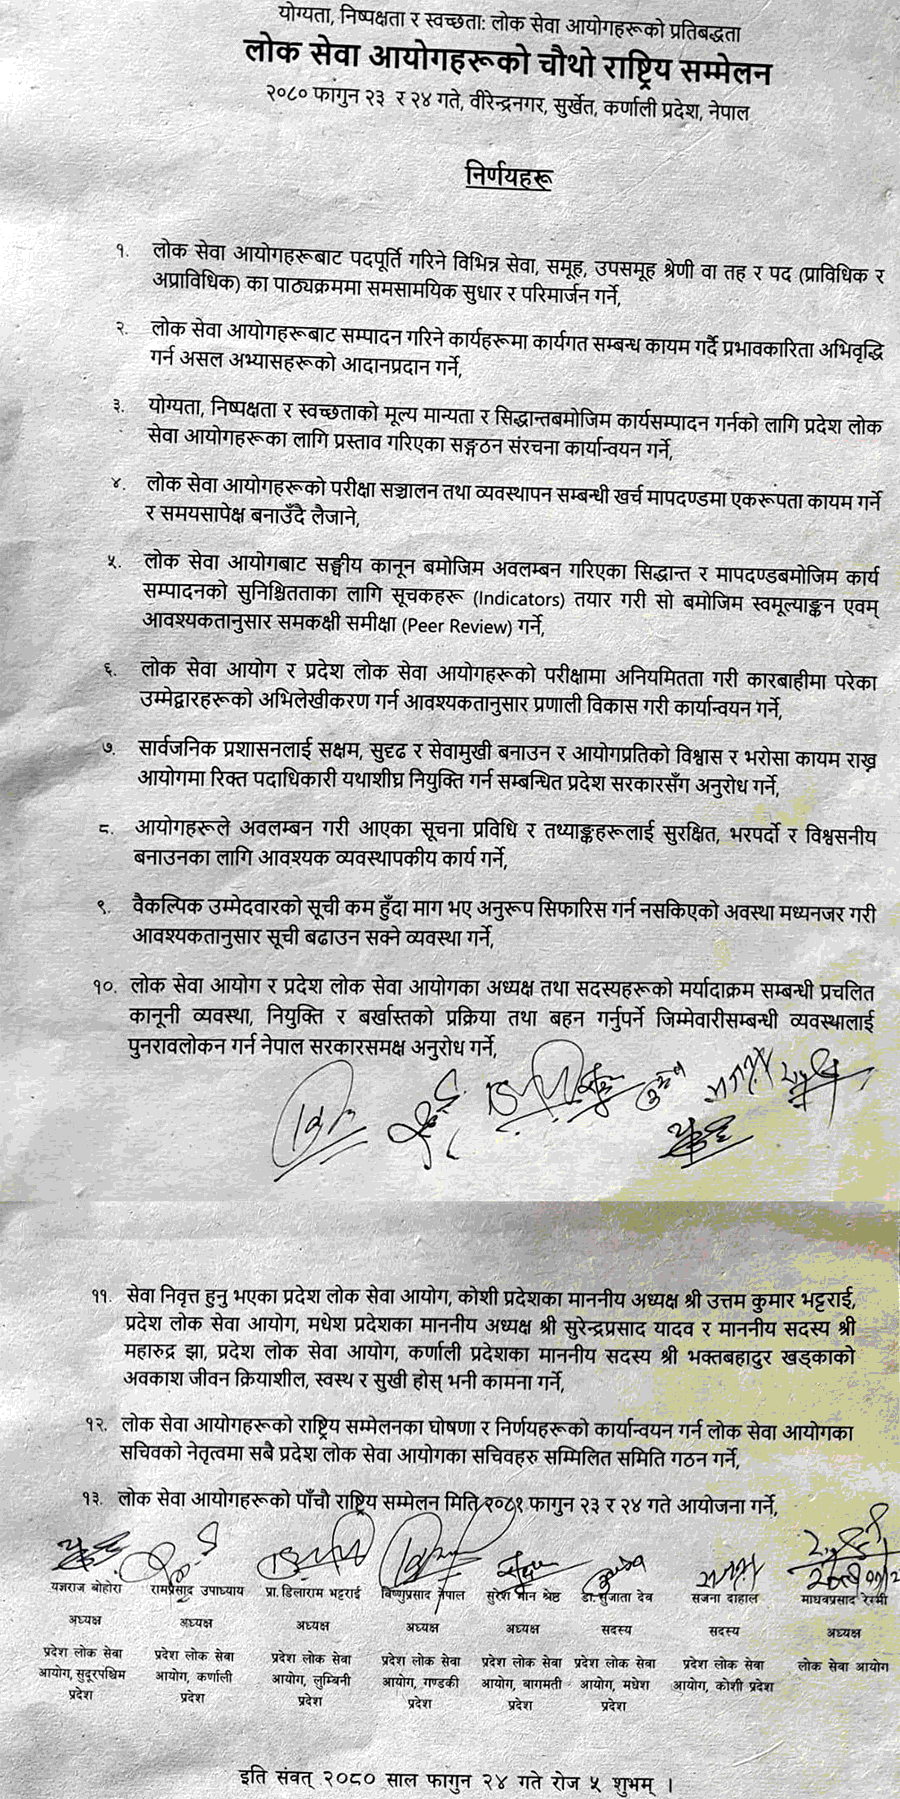 योग्यता, निष्पक्षता र स्वच्छता: लोक सेवा आयोगहरूको प्रतिबद्धता
लोक सेवा आयोगहरूको चौथो राष्ट्रिय सम्मेलन
२०८० फागुन २३ र २४ गते, वीरेन्द्रनगर, सुर्खेत, कर्णाली प्रदेश, नेपाल
निर्णयहरू
१. लोक सेवा आयोगहरूबाट पदपूर्ति गरिने विभिन्न सेवा, समूह, उपसमूह श्रेणी वा तह र पद (प्राविधिक र
अप्राविधिक) का पाठ्यक्रममा समसामयिक सुधार र परिमार्जन गर्ने,
२. लोक सेवा आयोगहरूबाट सम्पादन गरिने कार्यहरूमा कार्यगत सम्बन्ध कायम गर्दै प्रभावकारिता अभिवृद्धि
गर्न असल अभ्यासहरूको आदानप्रदान गर्ने,
३. योग्यता, निष्पक्षता र स्वच्छताको मूल्य मान्यता र सिद्धान्तबमोजिम कार्यसम्पादन गर्नको लागि प्रदेश लोक
सेवा आयोगहरूका लागि प्रस्ताव गरिएका सङ्गठन संरचना कार्यान्वयन गर्ने,
४. लोक सेवा आयोगहरूको परीक्षा सञ्चालन तथा व्यवस्थापन सम्बन्धी खर्च मापदण्डमा एकरूपता कायम गर्ने
र समयसापेक्ष बनाउँदै लैजाने,
५. लोक सेवा आयोगबाट सङ्घीय कानून बमोजिम अवलम्बन गरिएका सिद्धान्त र मापदण्डबमोजिम कार्य
सम्पादनको सुनिश्चितताका लागि सूचकहरू (Indicators) तयार गरी सो बमोजिम स्वमूल्याङ्कन एवम्
आवश्यकतानुसार समकक्षी समीक्षा (Peer Review) गर्ने,
६. लोक सेवा आयोग र प्रदेश लोक सेवा आयोगहरूको परीक्षामा अनियमितता गरी कारबाहीमा परेका
उम्मेद्वारहरूको अभिलेखीकरण गर्न आवश्यकतानुसार प्रणाली विकास गरी कार्यान्वयन गर्ने,
७. सार्वजनिक प्रशासनलाई सक्षम, सुदृढ र सेवामुखी बनाउन र आयोगप्रतिको विश्वास र भरोसा कायम राख्न
आयोगमा रिक्त पदाधिकारी यथाशीघ्र नियुक्ति गर्न सम्बन्धित प्रदेश सरकारसँग अनुरोध गर्ने,
८. आयोगहरूले अवलम्बन गरी आएका सूचना प्रविधि र तथ्याङ्कहरूलाई सुरक्षित, भरपर्दो र विश्वसनीय
बनाउनका लागि आवश्यक व्यवस्थापकीय कार्य गर्ने,
९. वैकल्पिक उम्मेदवारको सूची कम हुँदा माग भए अनुरूप सिफारिस गर्न नसकिएको अवस्था मध्यनजर गरी
आवश्यकतानुसार सूची बढाउन सक्ने व्यवस्था गर्ने,
१०. लोक सेवा आयोग र प्रदेश लोक सेवा आयोगका अध्यक्ष तथा सदस्यहरूको मर्यादाक्रम सम्बन्धी प्रचलित
कानूनी व्यवस्था, नियुक्ति र बर्खास्तको प्रक्रिया तथा बहन गर्नुपर्ने जिम्मेवारीसम्बन्धी व्यवस्थालाई
पुनरावलोकन गर्न नेपाल सरकारसमक्ष अनुरोध गर्ने,
११. सेवा निवृत्त हुनु भएका प्रदेश लोक सेवा आयोग, कोशी प्रदेशका माननीय अध्यक्ष श्री उत्तम कुमार भट्टराई,
प्रदेश लोक सेवा आयोग, मधेश प्रदेशका माननीय अध्यक्ष श्री सुरेन्द्रप्रसाद यादव र माननीय सदस्य श्री
महारुद्र झा, प्रदेश लोक सेवा आयोग, कर्णाली प्रदेशका माननीय सदस्य श्री भक्तबहादुर खड्काको
अवकाश जीवन क्रियाशील, स्वस्थ र सुखी होस् भनी कामना गर्ने,
१२. लोक सेवा आयोगहरूको राष्ट्रिय सम्मेलनका घोषणा र निर्णयहरूको कार्यान्वयन गर्न लोक सेवा आयोगका
सचिवको नेतृत्वमा सबै प्रदेश लोक सेवा आयोगका सचिवहरु सम्मिलित समिति गठन गर्ने,
१३. लोक सेवा आयोगहरूको पाँचौ राष्ट्रिय सम्मेलन मिति २०८१ फागुन २३ र २४ गते आयोजना गर्ने,
यज्ञराज बोहोरा रामप्रसाद उपाध्याय प्रा.डिलाराम भट्टराई विष्णुप्रसाद नेपाल सुरेश मान श्रेष्ठ डा. सुजाता देव सजना दाहाल माधवप्रसाद रेग्मी
अध्यक्ष अध्यक्ष अध्यक्ष अध्यक्ष अध्यक्ष सदस्य सदस्य अध्यक्ष
प्रदेश लोक सेवा प्रदेश लोक सेवा प्रदेश लोक सेवा प्रदेश लोक सेवा प्रदेश लोक सेवा प्रदेश लोक सेवा प्रदेश लोक सेवा लोक सेवा आयोग
आयोग, सुदूरपश्चिम आयोग, कर्णाली आयोग, लुम्बिनी आयोग, गण्डकी आयोग, बागमती आयोग, मधेश आयोग, कोशी प्रदेश
प्रदेश प्रदेश प्रदेश प्रदेश प्रदेश प्रदेश
इति संवत् २०८० साल फागुन २४ गते रोज ५ शुभम् ।